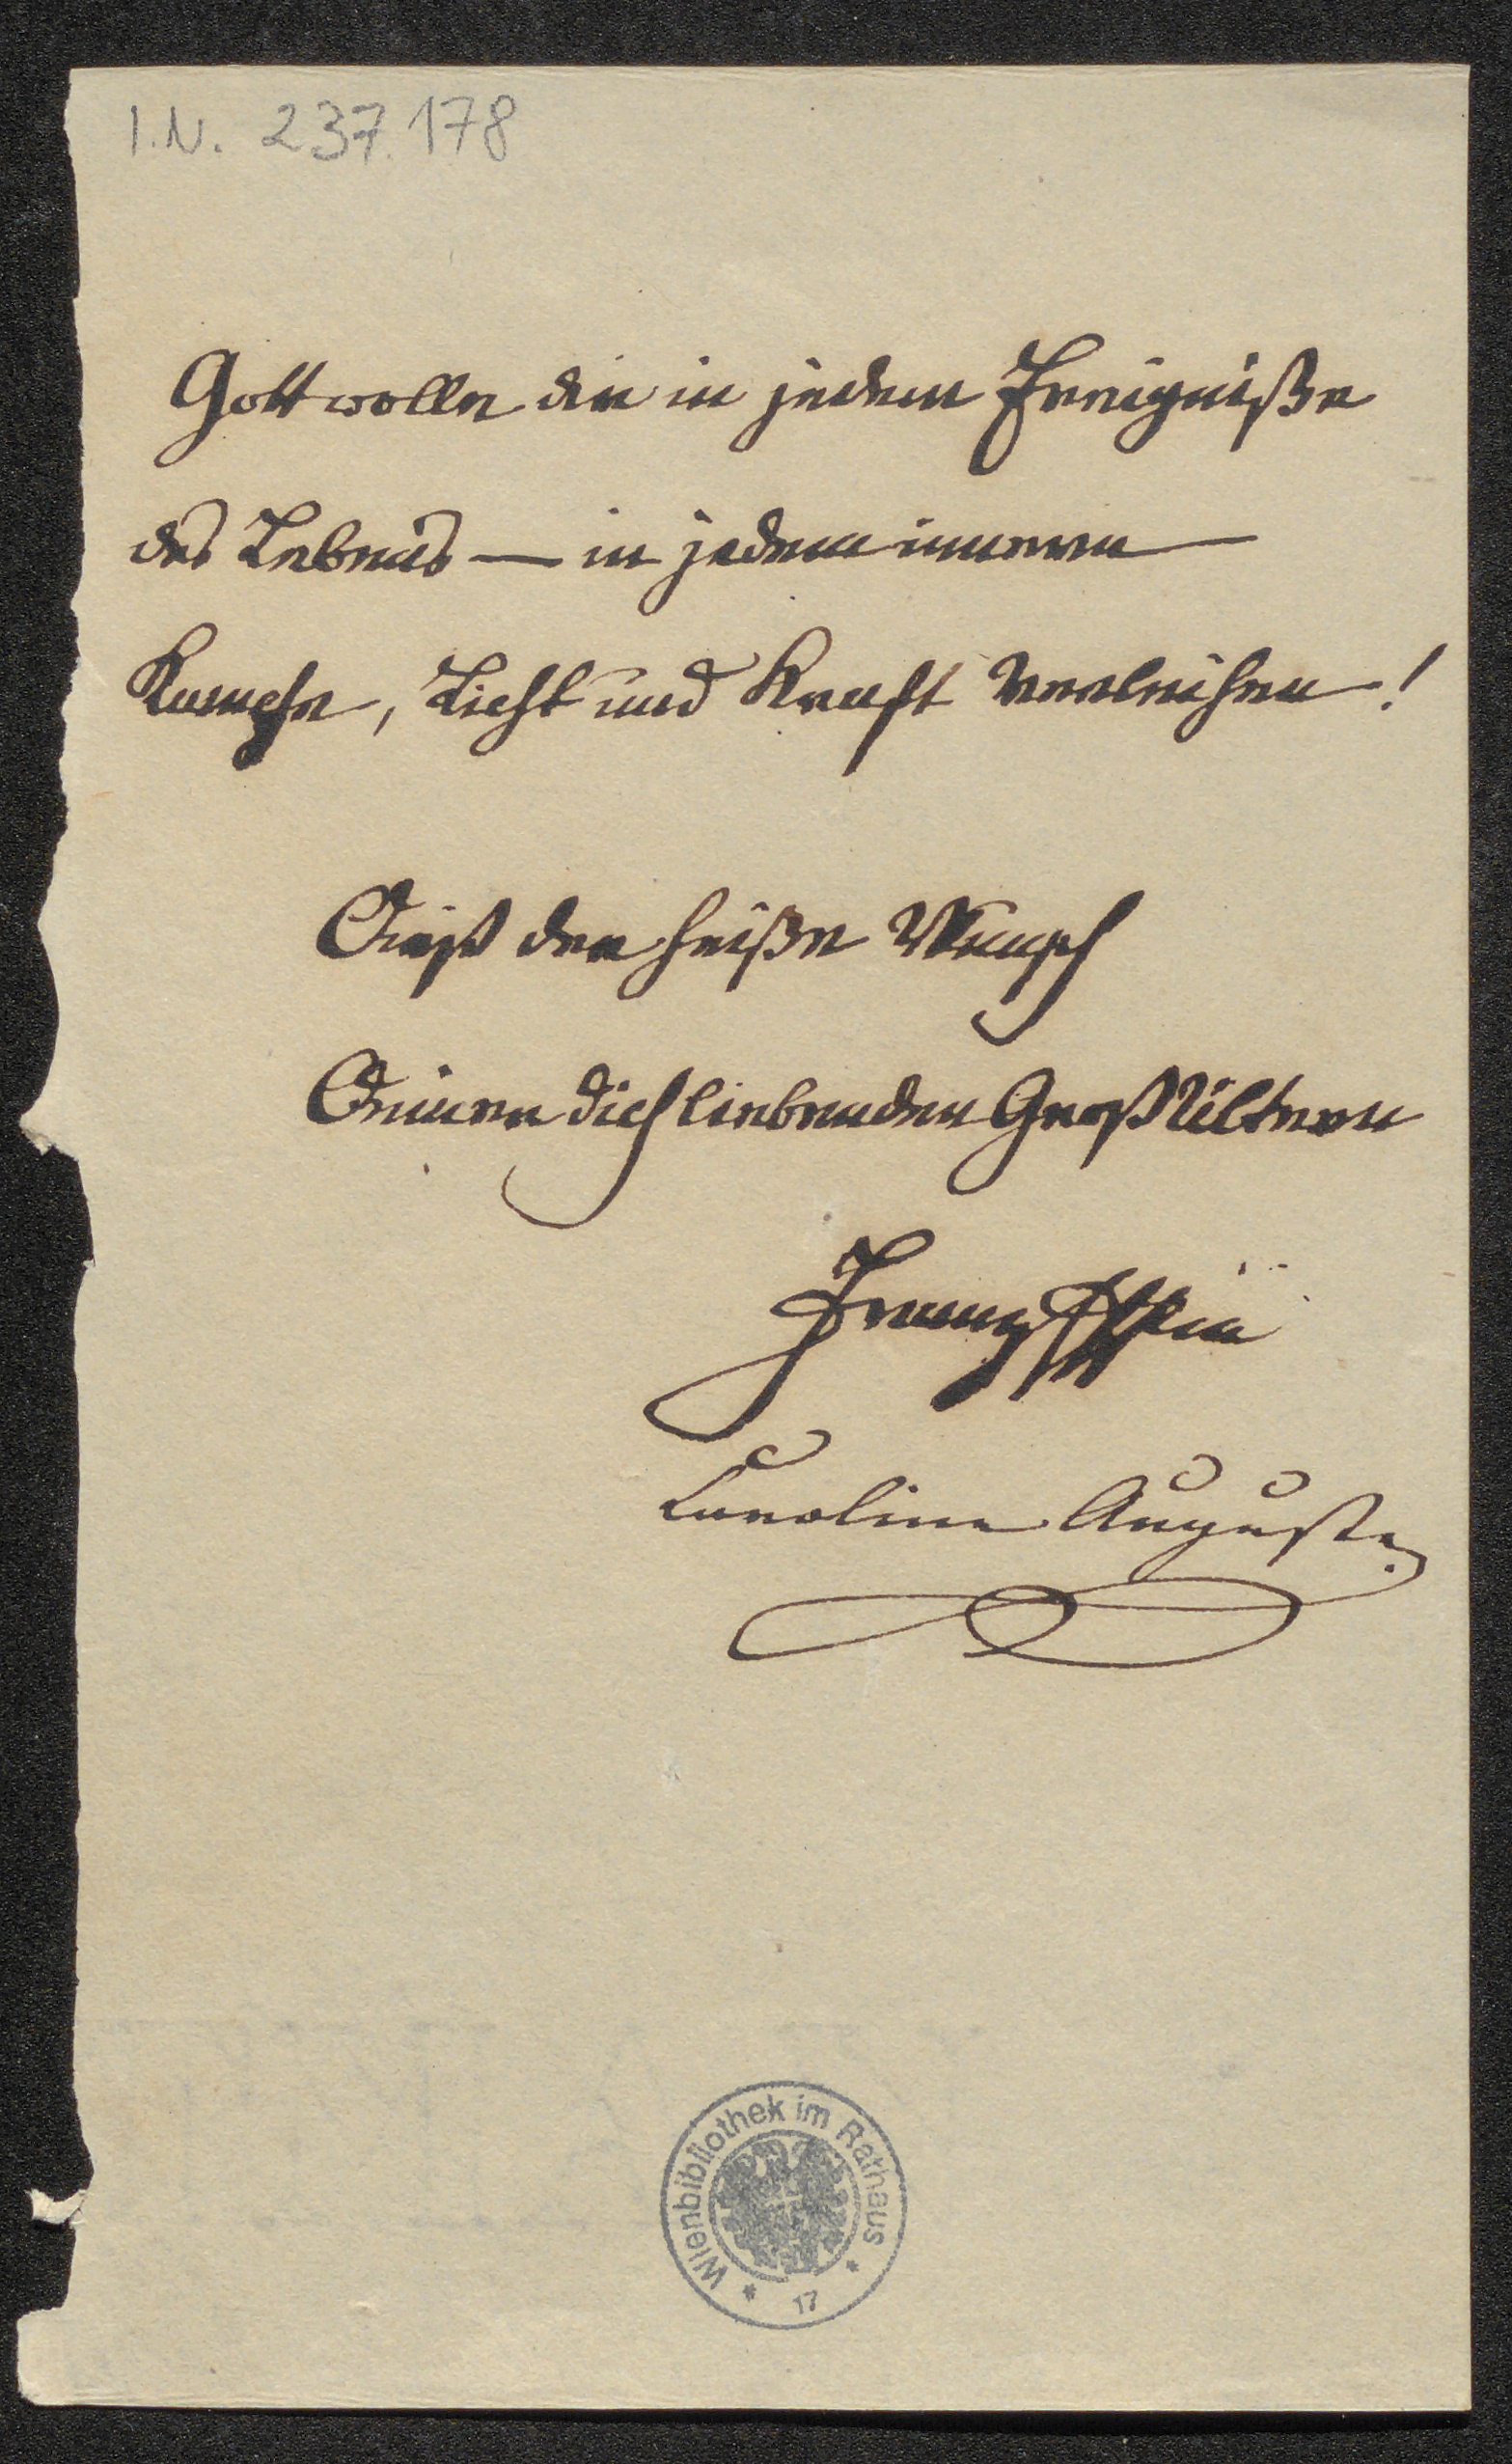 I.N. 237.178
Gott wolle dir in jedem Ereigniße
des Lebens — in jedem inneren
Kampfe, Licht und Kraft verleihen!
Dieß der heiße Wunsch
Deiner dich liebenden Großältern
Franz
Caroline Auguste
Wienbibliothek im Rathaus
17